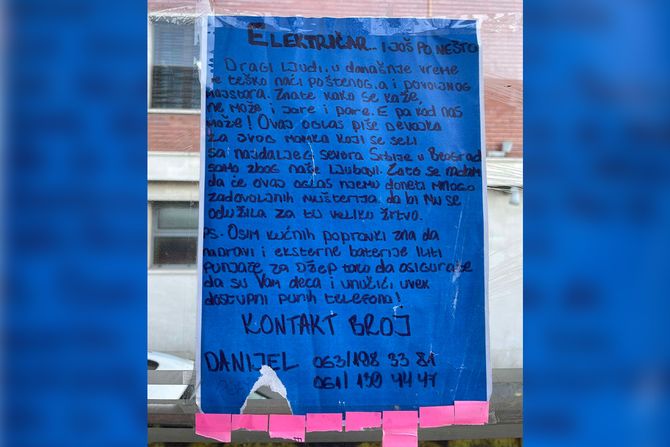 Električar.. i još po nešto
Dragi ljudi, u današnje vreme
je teško naći poštenog,a i povoljnog
majstora. Znate kako se kaže,
ne može i jare i pare. E pa kod nas
može! Ovaj oglas piše devojka
za svog momka koji se seli
sa najdaljeg severa Srbije u Beograd
samo zbog naše ljubavi. Zato se nadam
da će ovaj oglas njemu doneti mnogo
zadovoljnih mušterija, da bi mu se
odužila za tu veliku žrtvu.
ps. Osim kućnih popravki zna da
napravi i eksterne baterije iliti
punjače za džep tako da osigurate
da su Vam deca i unučići uvek
dostupni punih telefona!
KONTAKT BROJ
DANIJEL 063/198 33 81
061/130 44 47